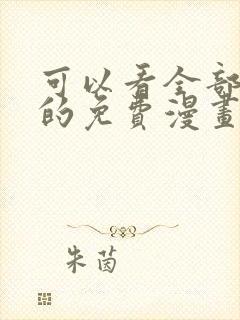 可以看全部
的免費漫畫
朱茵